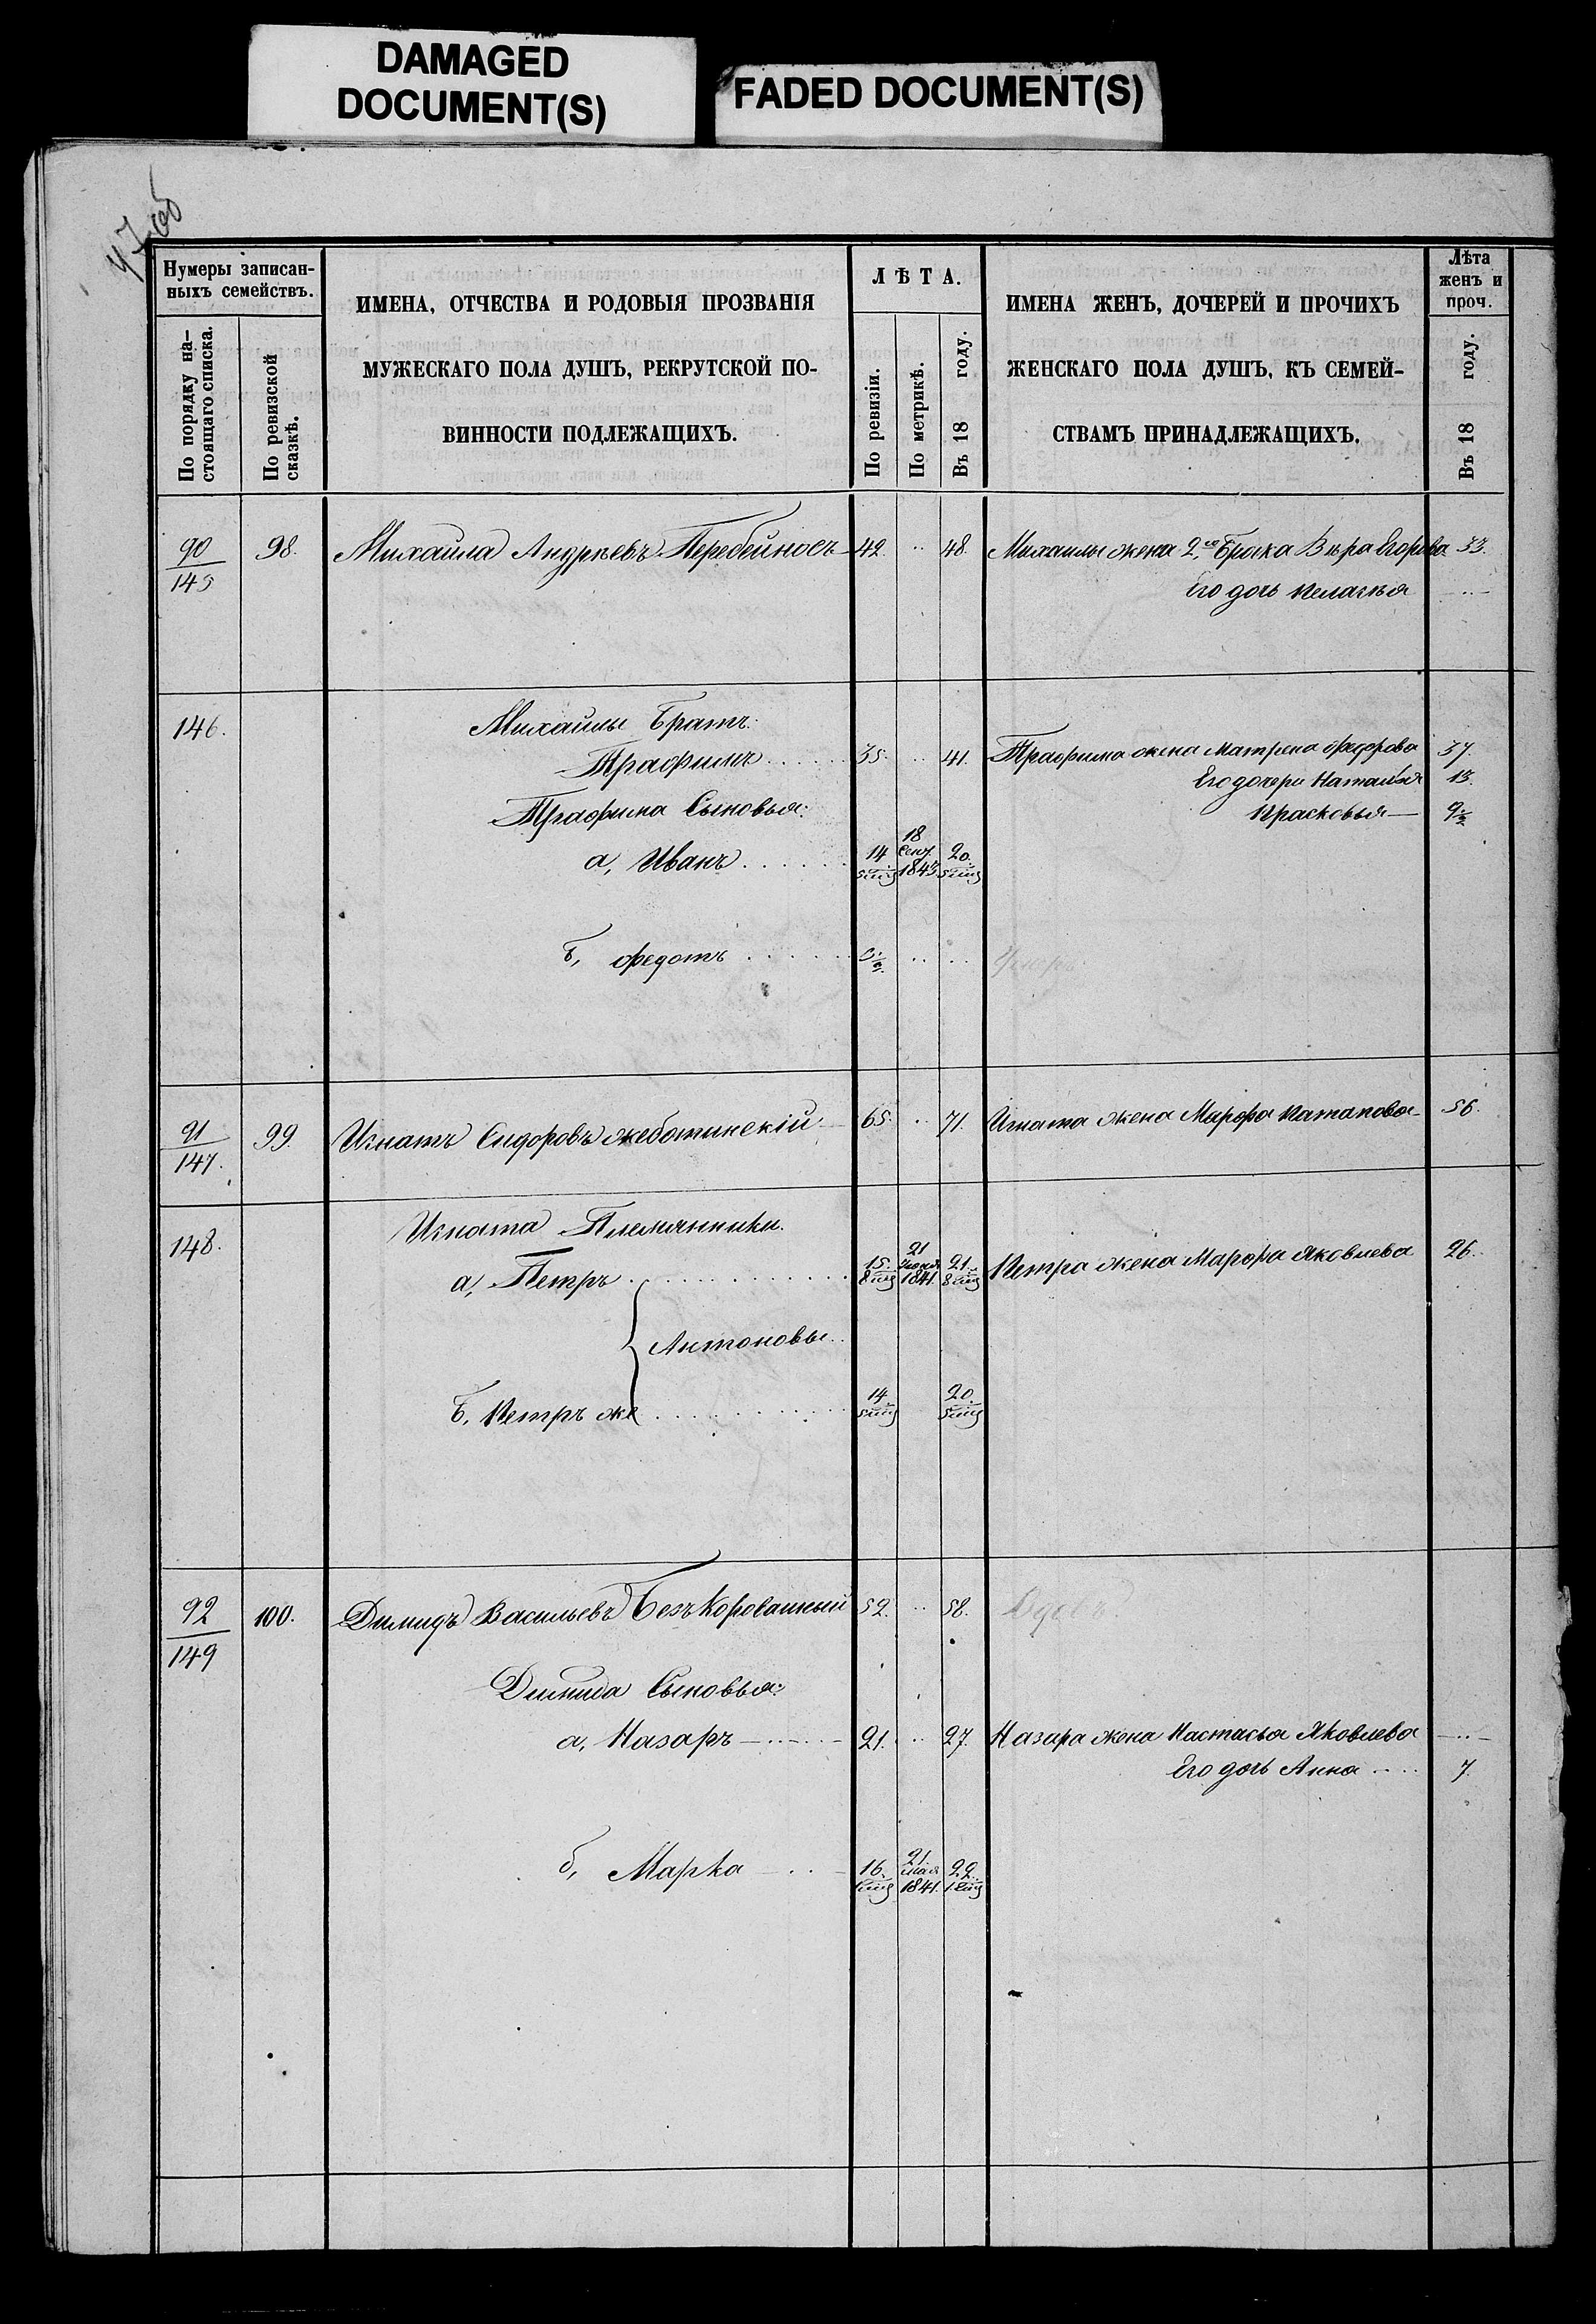 DAMAGED
DOCUMENT(S)
FADED DOCUMENT(S)
47 об
Нумеры записан-
ныхъ семействъ.
По порядку на-
стоящаго списка.
По ревизской
сказкѣ.
ИМЕНА, ОТЧЕСТВА И РОДОВЫЯ ПРОЗВАНІЯ
МУЖЕСКАГО ПОЛА ДУШЪ, РЕКРУТСКОЙ ПО-
ВИННОСТИ ПОДЛЕЖАЩИХЪ.
ЛѢТА.
По ревизіи.
По метрикѣ.
Въ 18 году.
ИМЕНА ЖЕНЪ, ДОЧЕРЕЙ И ПРОЧИХЪ
ЖЕНСКАГО ПОЛА ДУШЪ, КЪ СЕМЕЙ-
СТВАМЪ ПРИНАДЛЕЖАЩИХЪ.
Лѣта
женъ и
проч.
Въ 18 году.
90/145 98. Михайла Андреевъ Перебейносъ 42. .. 48. Михайлы жена 2го Брака Вѣра Егорова 53.
Его дочь Пелагѣя ..
146. Михайлы Братъ:
Трофимъ 35. .. 41. Трофима жена Матрена Федорова 37.
Его дочери Наталья 13.
Трофима Сыновья: Прасковья 9
а, Иванъ 14 5 мѣ 18 Сен. 1843 20. 5 мѣ
б, Федотъ .. .. Умеръ
91/147. 99. Игнатъ Сидоровъ Жеботинскій 65. .. 71. Игната жена Марфа Патапова 56.
148. Игната Племянники.
а, Петръ 15. 8 мѣ 21 1841. 21. 8 мѣ Петра жена Марфа Яковлева 26.
Антоновы
б, Петръ же 14 5 мѣ 20. 5 мѣ
92/149 100. Димидъ Васильевъ Безъкороваиный 52. .. 58. Вдовъ
Димида Сыновья:
а, Назаръ 21. .. 27. Назара жена Настасья Яковлева ..
Его дочь Анна 7.
б, Марка 16. 1 мѣ 21. мая 1841. 22. 1 мѣ